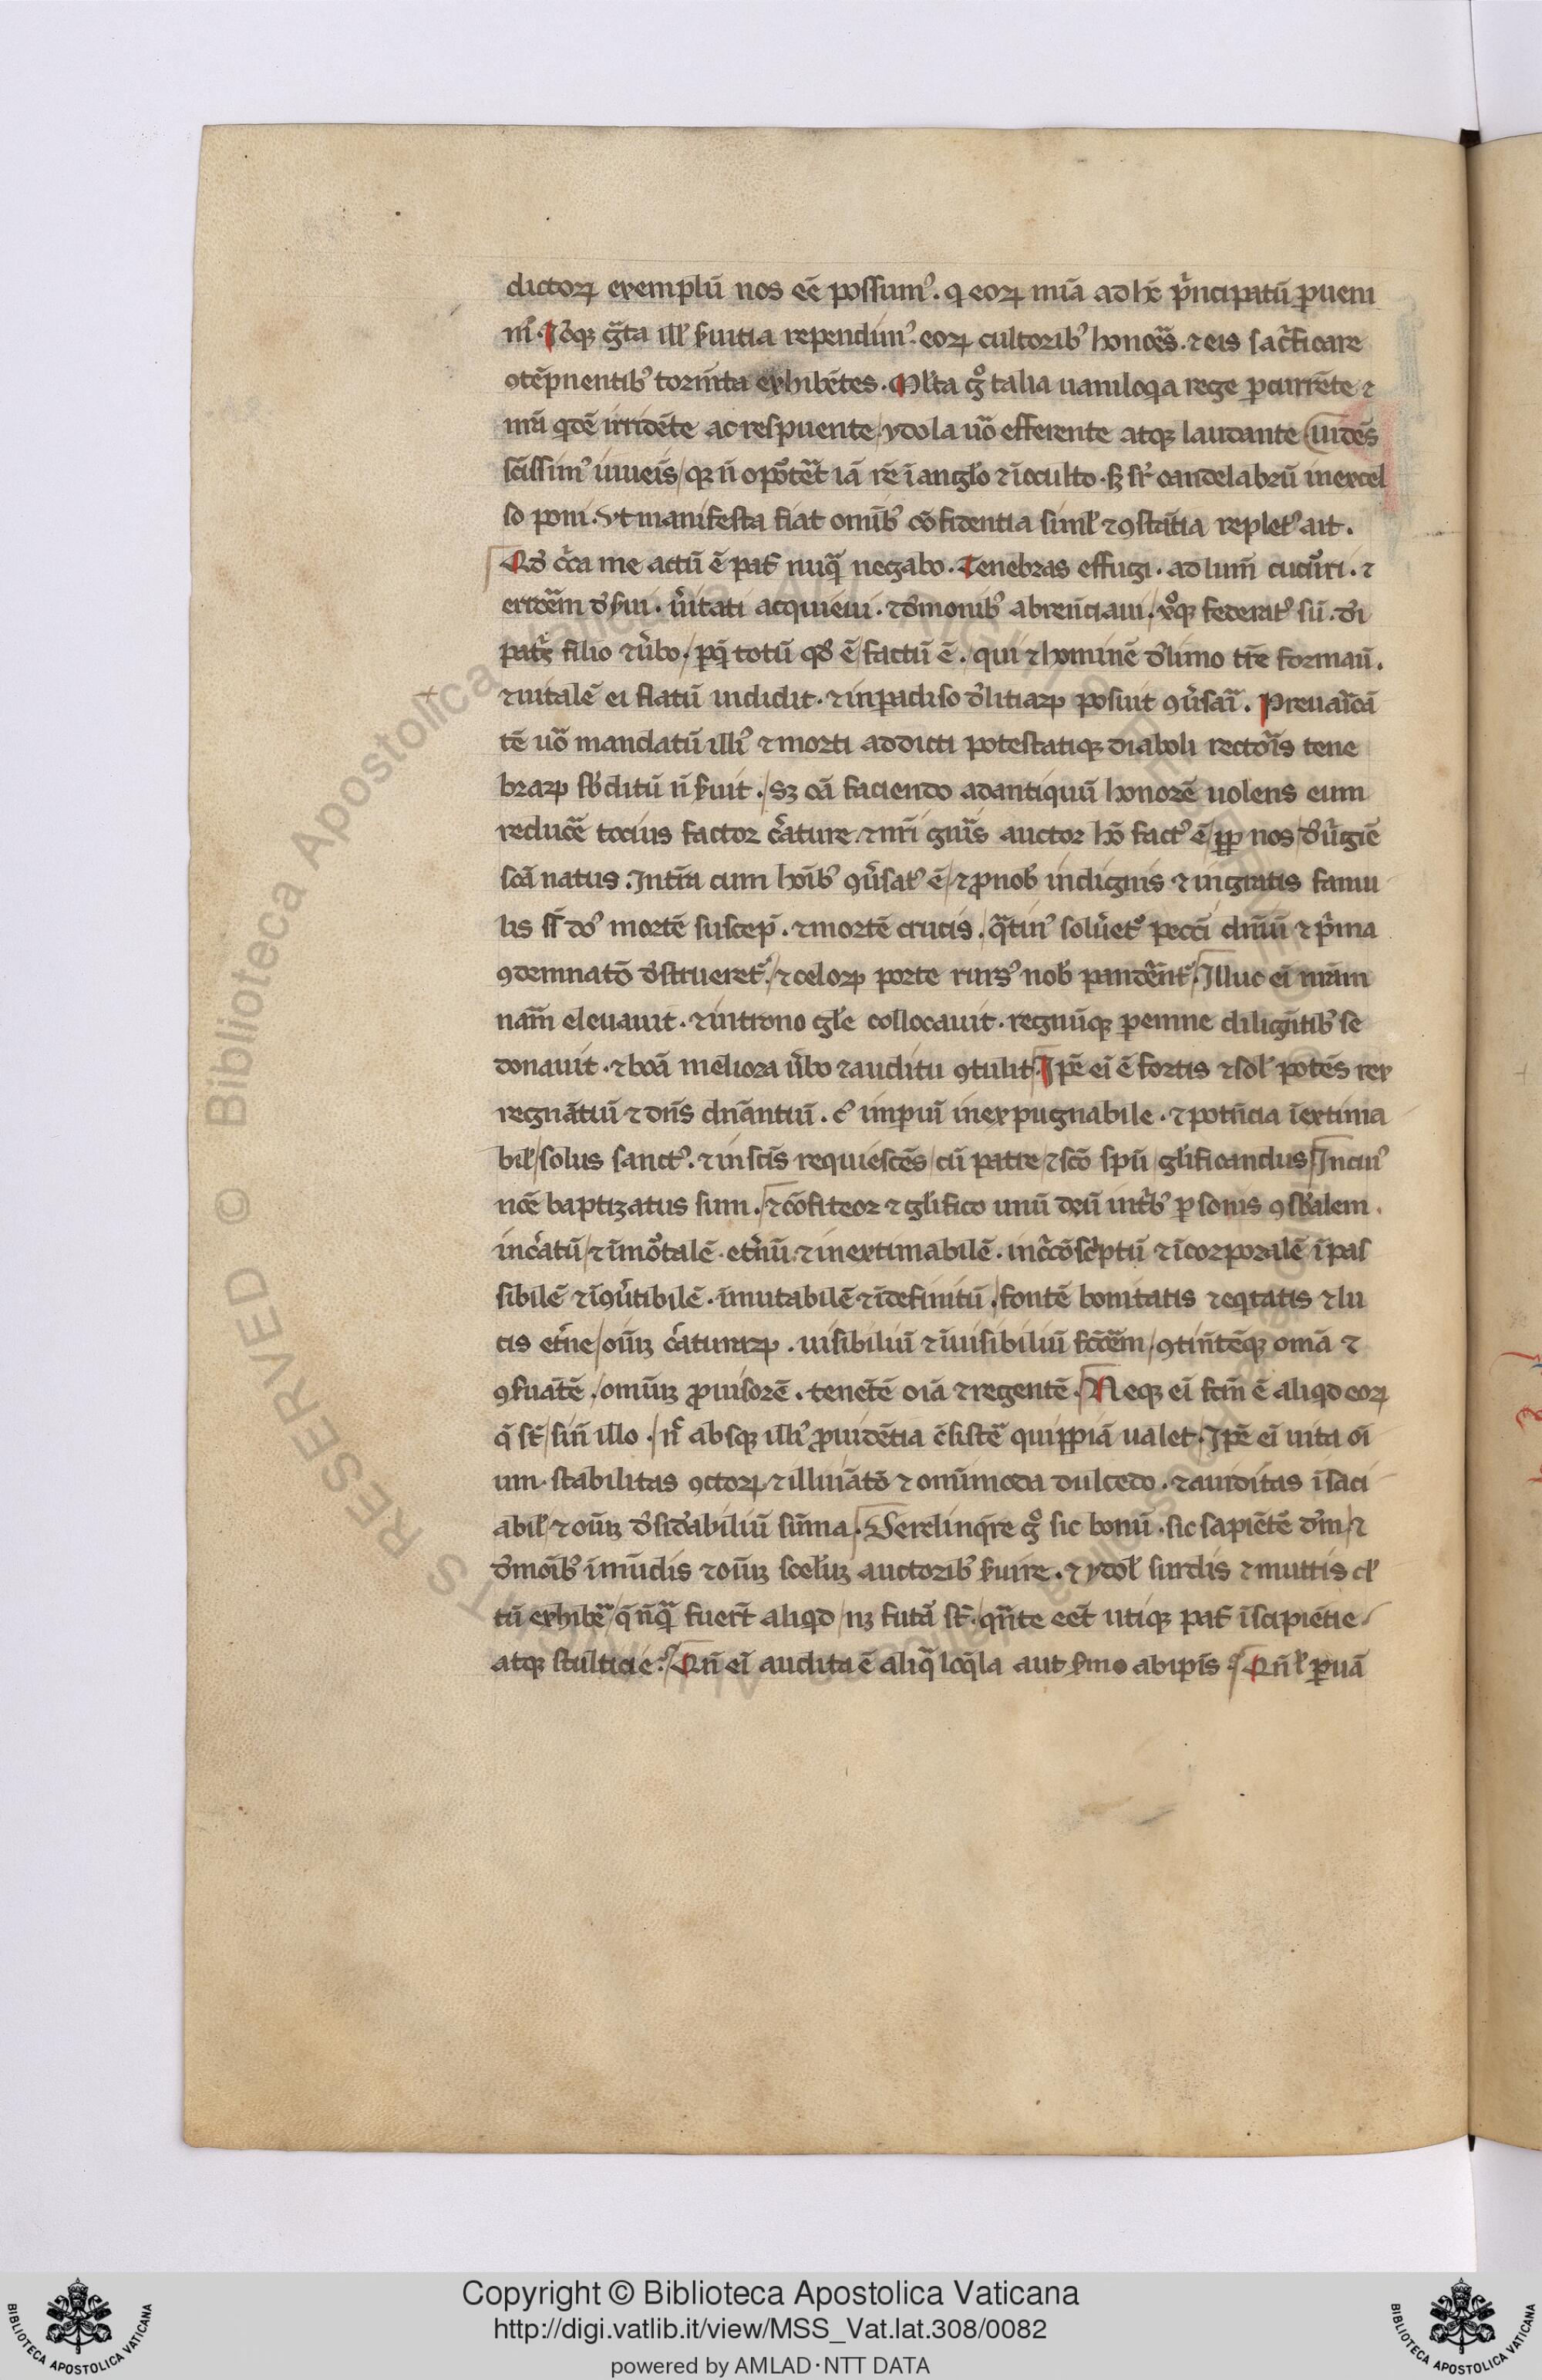 dictoꝝ exemplū nos eē possum᾽. q eoꝝ mīa ad hͦ pͥncipatū ꝑueni
m᾽. Iōqꝫ gͣta ill᾽ s̾uitia rependim᾽. eoꝝ cultorib᾽ honoēs. ⁊ eis sacͥficare
ꝯtēpnentib᾽ torm̄ta exhibētes. Mlta gͦ talia uaniloqa rege ꝑcurrēte ⁊
irridēte ac respuente ydola uͦo efferente atqꝫ laudante uidēs
so poni. Vt manifesta fiat omīb᾽ cōfidentia siml̾ ⁊ ꝯstātia replet᾽ ait.
Qͩ cͥca me actū ē pat̾ nūqͣ negabo. Tenebras effugi. ad lum̄ cucurͥi. ⁊
errōem d̾serui. u̾itati acquieui. ⁊ d̾monib᾽ abrenūciaui. xͦqꝫ federat᾽ sū. d̾i
patͥs filio ⁊ u̾bo. ꝑ q̄ totū qͩ ē factū ē. qui ⁊ hominē d̾ limo tr̄e formau̅.
⁊ uitalē ei flatū indidit. ⁊ in ꝑadiso d̾litiaꝝ posuit ꝯu̾saī. Preuaͥcā
tē uͦo mandatū illi᾽ ⁊ morti addicti potestatiqꝫ diaboli rectoͥs tene
braꝝ sb̾ditū n̄ s̾uit. sꝫ oā faciendo ad antiquū honorē uolens eum
reducͤe tocius factor cͤature ⁊ nr̄i gn̄is auctor hō fact᾽ ē ꝓpꝉ nos d̾ u̾giē
scā natus. In tr̄a cum hōib᾽ ꝯu̾sat᾽ ē ⁊ ꝓ nob̾ indignis ⁊ ingratis famu
lis d᾽ mortē suscep̄. ⁊ mortē crucis. qͣtin᾽ solu̾et᾽ pecci dn̄iū ⁊ pͥma
ꝯdemnatō d̾strueret᾽. ⁊ celoꝝ porte rurs᾽ nob̾ pandēnt᾽. Illuc ei nrām
nam̄ eleuauit. ⁊ in trono gl̾e collocauit. regnūqꝫ ꝑenne diligētib᾽ se
donauit. ⁊ boā meliora u̾bo ⁊ auditu ꝯtulit. Ip̄e ei ē fortis ⁊ sol̾ potēs rex
regnātiū ⁊ dn̄s dn̄antiū. inexpugnabile. ⁊ potn̄cia īextima
bil̾ solus sanct᾽. ⁊ in scīs requiescēs cū patre ⁊ scō spū gl̾ificandus In cui᾽
nōē baptizatus sum. ⁊ cōfiteor ⁊ gl̾ifico unū deū in tͥb᾽ ꝑsonis ꝯsb̾alem.
incͤatū ⁊ īmoͬtalē. et̾nū ⁊ inextimabilē. incͥcōscͥptū ⁊ īcorporalē īpas
sibilē ⁊ īꝯu̾tibilē. īmutabilē ⁊ īdefinitū. fontē bonitatis ⁊ eqͥtatis ⁊ lu
cis et̾ne oīuꝫ cͤaturaꝝ. uisibiliū ⁊ īuisibiliū fcōem ꝯtinētēqꝫ omā ⁊
ꝯs̾uātē. omīuꝫ ꝓuisorē. tenētē oīa ⁊ regentē. Neqꝫ ei fcm̄ ē aliqd eoꝝ
q̄ st̄ sin̄ illo. nͤ absqꝫ illi᾽ ꝓuidētia cōsistͤe quippiā ualet. Ip̄e ei uita oī
um. stabilitas ꝯctoꝝ ⁊ illuīatō ⁊ omīmoda dulcedo. ⁊ auiditas īsaci
abil̾ ⁊ oīuꝫ d̾sid̾abiliū sūma. Derelinqͤre gͦ sic bonū. sic sapiētē d̾m ⁊
d̾monib᾽ īmūdis ⁊ oīuꝫ scel̾uꝫ auctorib᾽ s̾uire. ⁊ ydol̾ surdis ⁊ muttis cl̾
tū exhibͤe q̄ nūqͣ fuert̄ aliqd nꝫ futͣa st̄. qn̄te eēt utiqꝫ pat̾ īsapiētie
atqꝫ stulticie? Qn̄ ei audita ē aliqͣ locq̄la aut s̾mo ab ip̄is? Qn̄ l̾ ꝑuā
Copyright © Biblioteca Apostolica Vaticana
http://digi.vatlib.it/view/MSS_Vat.lat.308/0082
powered by AMLAD·NTT DATA
BIBLIOTECA APOSTOLICA VATICANA
BIBLIOTECA APOSTOLICA VATICANA